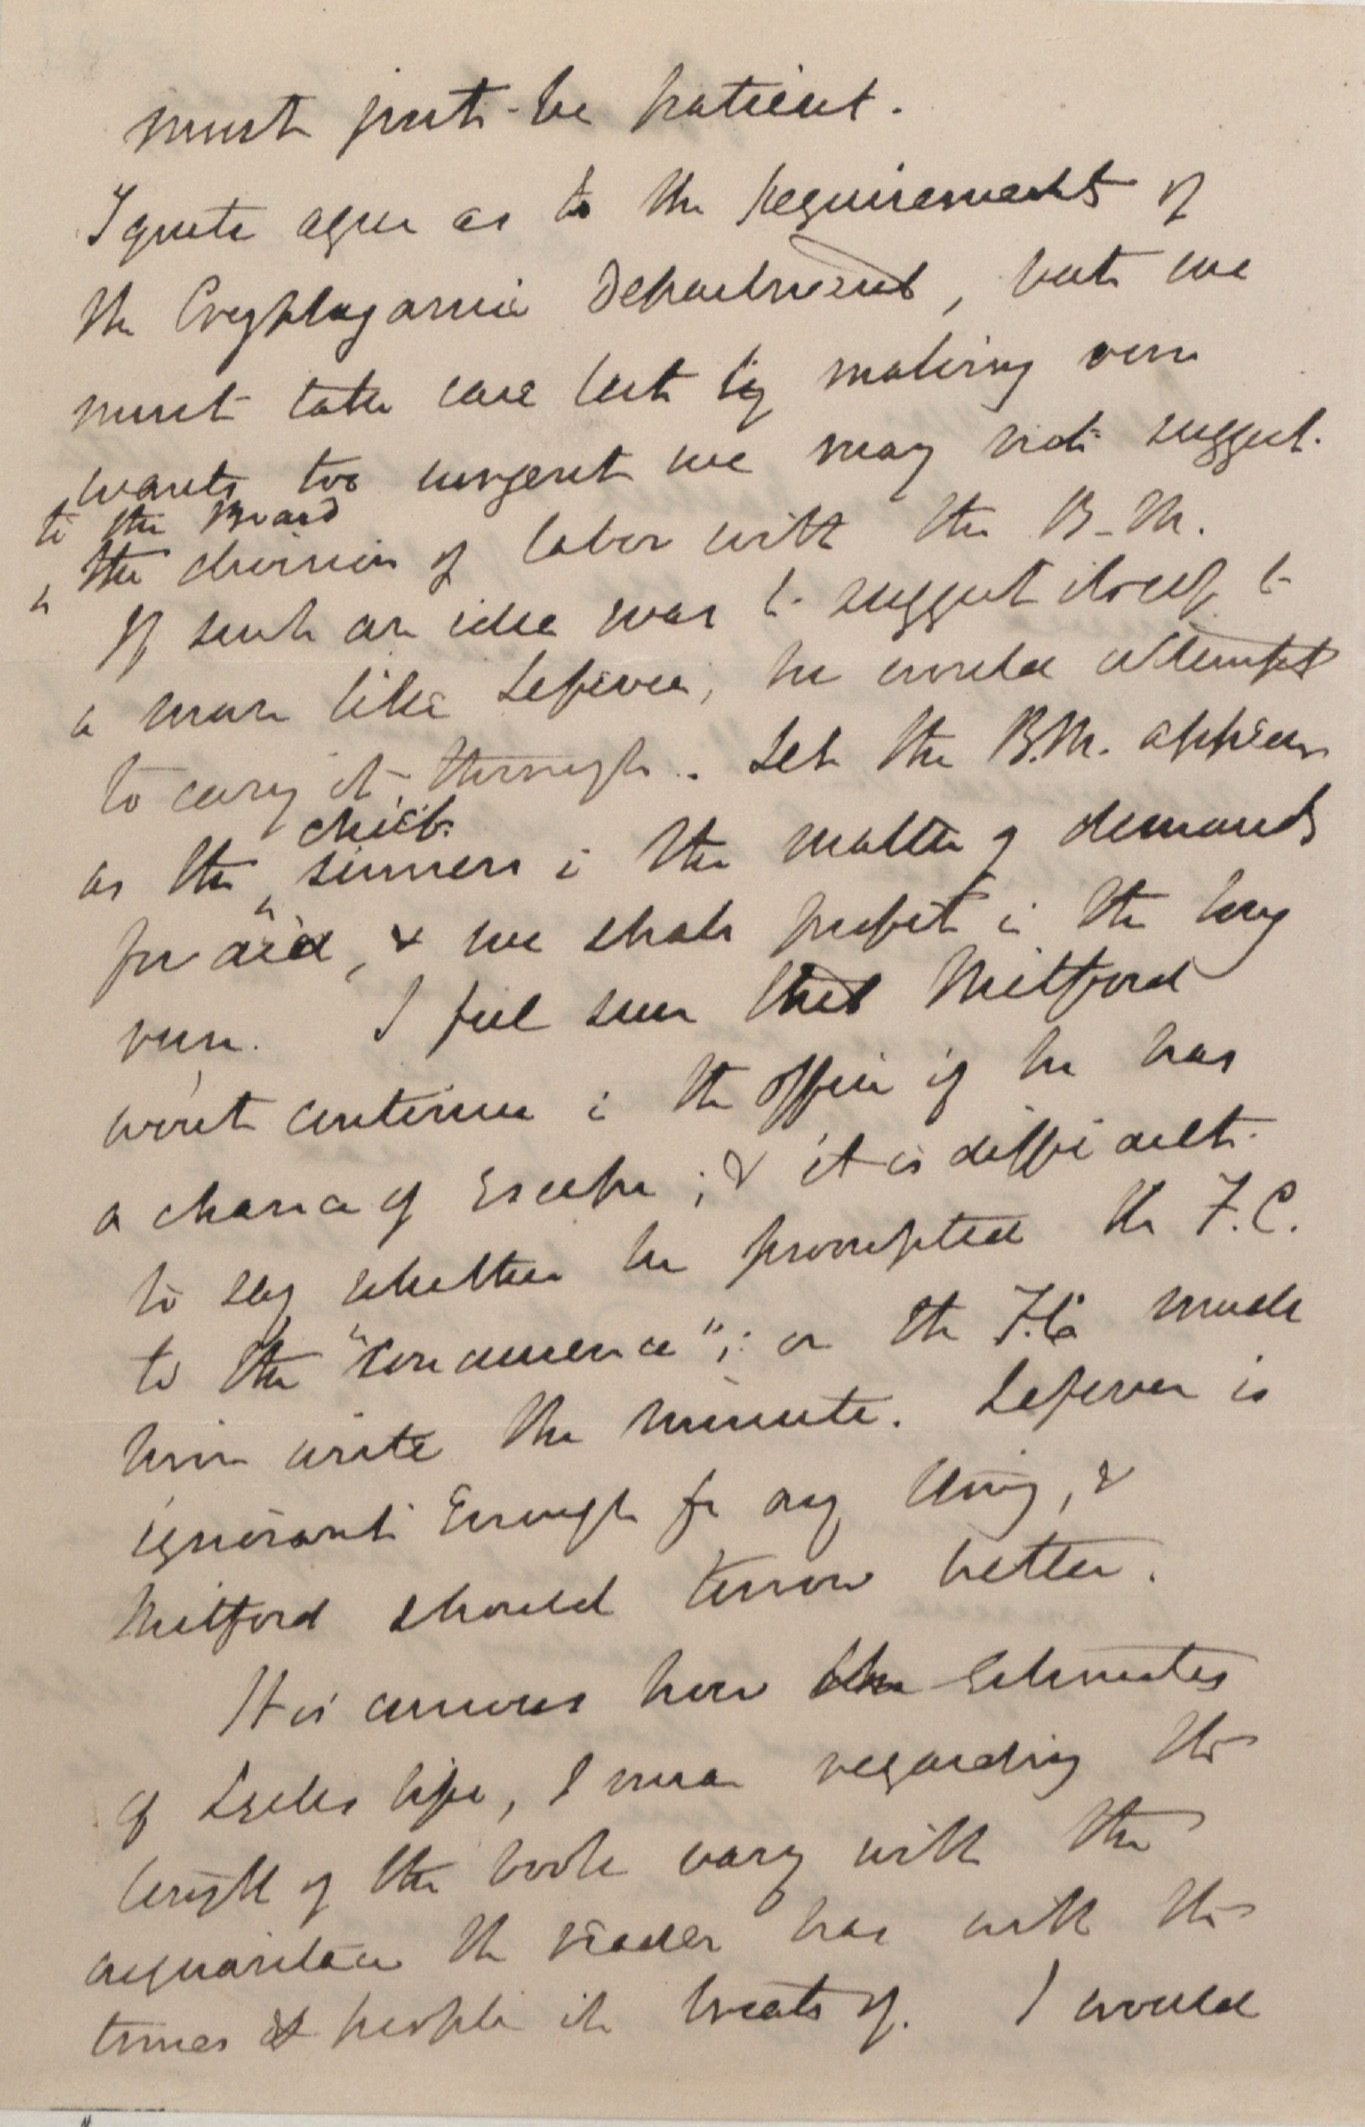 must just be patient.
I quite agree as to the requirements of
the Cryptogamic Department, but we
must take care lest by making our
wants too urgent we may not suggest
to the Board
^ the division of labor with the B.M.
If such an idea was to suggest itself to
a man like Lefevre, he would attempt
to carry it through. Let the B.M. appear
chief
as the ^ sinners i the matter of demands
for aid, & we shall profit i the long
run. I feel sure that Mitford
won't continue i the office if he has
a chance of Escape; & it is difficult
to say whether he prompted the F.C.
to the "concurrence"; or the F.C. made
him write the minute. Lefevre is
ignorant Enough for any thing, &
Mitford should know better.
It is curious how the Estimates
of Lyells life, I mean regarding the
length of the book vary with the
acquaintance the reader has with the
times & people it treats of. I would